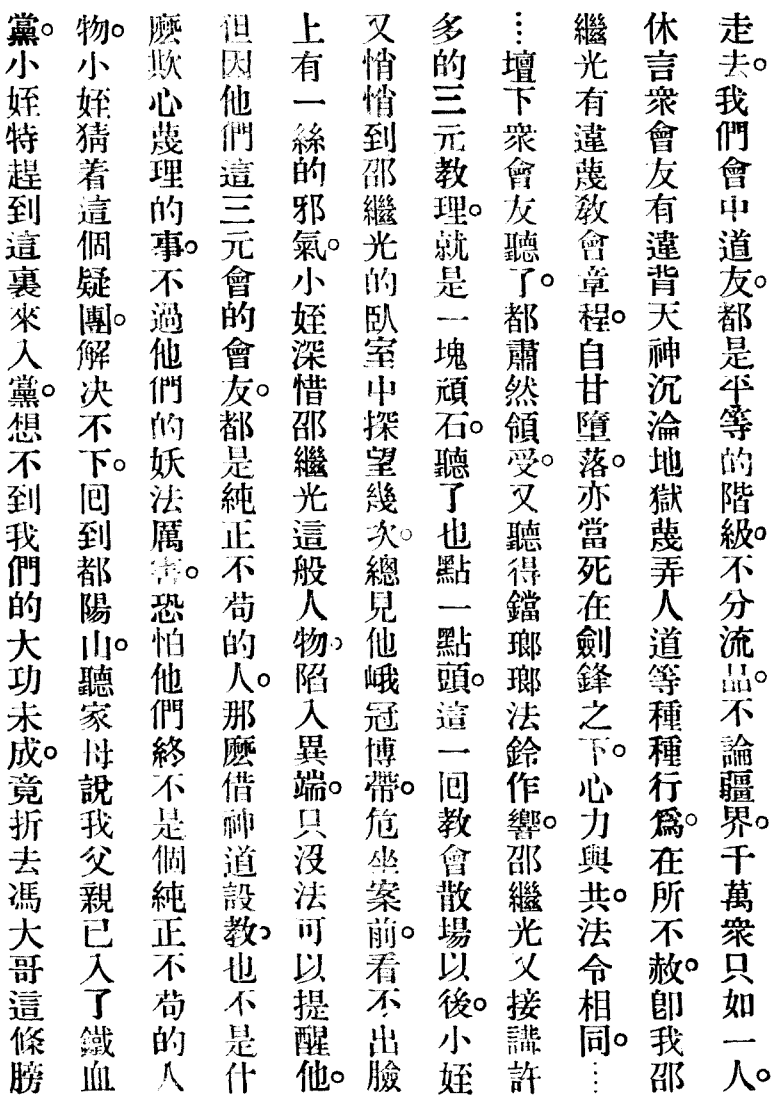 走去。我們會中道友。都是平等的階級。不分流品。不論疆界。千萬衆只如一人。
休言衆會友有違背天神沉淪地獄蔑弄人道等種種行爲。在所不赦。卽我邵
繼光有違蔑敎會章程。自甘墮落。亦當死在劍鋒之下。心力與共。法令相同。⋯
⋯壇下衆會友聽了。都肅然領受。又聽得鐺瑯瑯法鈴作響。邵繼光又接講許
多的三元敎理。就是一塊頑石。聽了也點一點頭。這一回敎會散場以後。小姪
又悄悄到邵繼光的臥室中探望幾次。總見他峨冠博帶。危坐案前。看不出臉
上有一絲的邪氣。小姪深惜邵繼光這般人物。陷入異端。只沒法可以提醒他。
但因他們這三元會的會友。都是純正不苟的人。那麽借神道設敎。也不是什
麽欺心蔑理的事。不過他們的妖法厲害。恐怕他們終不是個純正不苟的人
物。小姪猜着這個疑團。解决不下。回到都陽山。聽家母說我父親已入了鐵血
黨。小姪特趕到這裏來入黨。想不到我們的大功未成。竟折去馮大哥這條膀